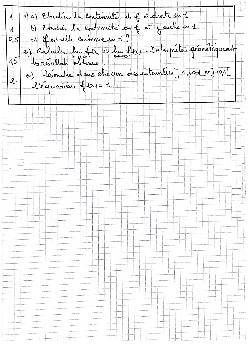 1 1) a) Etudier la continuité de f à droite en 1
1 b) Etudier la continuité de f à gauche en 1
0,5 c) f est-elle continue en 1 ?
2) Calculer lim f(x) et lim f(x). Interpréter géométriquement
1,5 les résultats obtenus
3) Résoudre dans chacun des intervalles
2 l'équation f(x) = 1